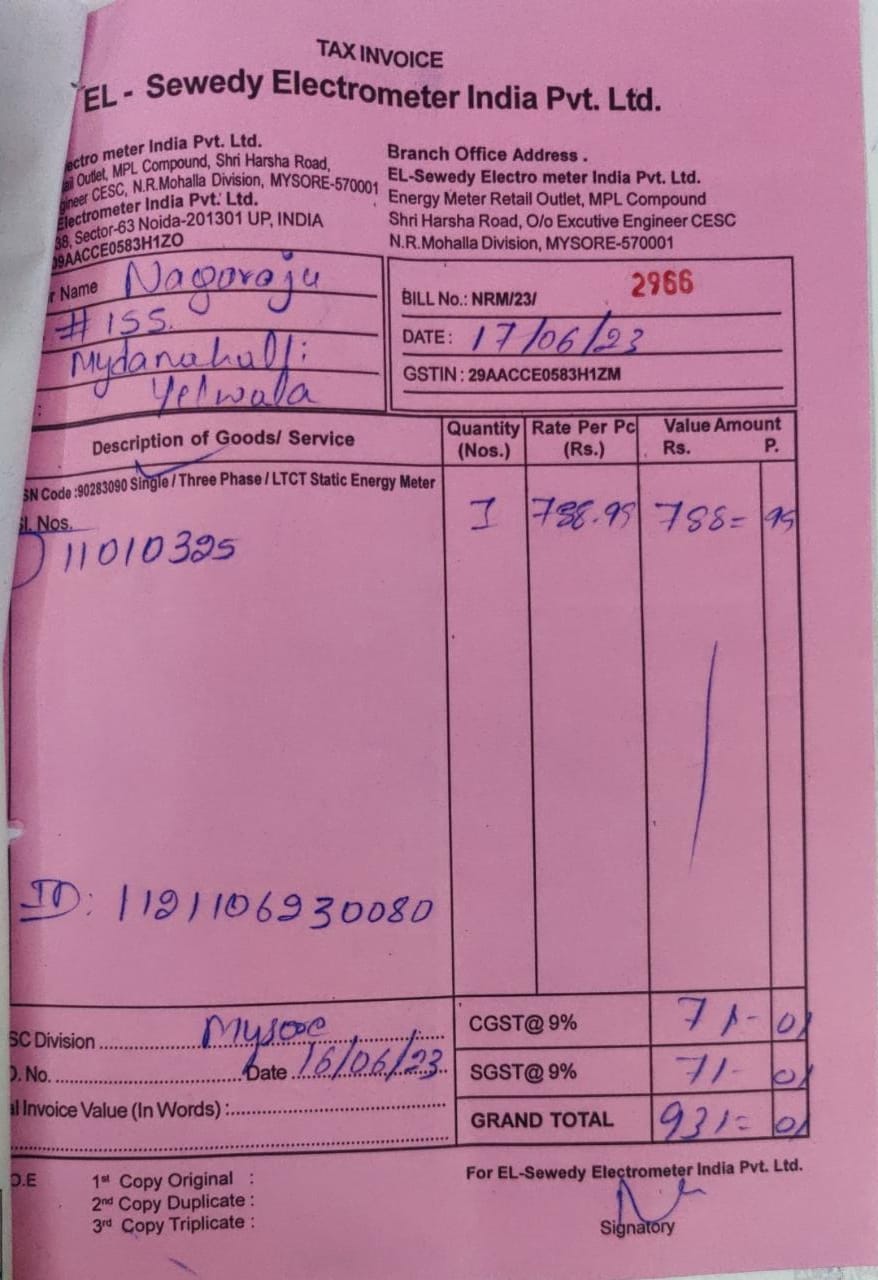 TAX INVOICE
EL - Sewedy Electrometer India Pvt. Ltd.
ectro meter India Pvt. Ltd.
ail Outlet, MPL Compound, Shri Harsha Road,
gineer CESC, N.R.Mohalla Division, MYSORE-570001
Electrometer India Pvt. Ltd.
38, Sector-63 Noida-201301 UP, INDIA
09AACCE0583H1ZO
Branch Office Address .
EL-Sewedy Electro meter India Pvt. Ltd.
Energy Meter Retail Outlet, MPL Compound
Shri Harsha Road, O/o Excutive Engineer CESC
N.R.Mohalla Division, MYSORE-570001
r Name Nagaraju
# 155.
Mydanahalli
Yelwala
:
BILL No.: NRM/23/ 2966
DATE: 17/06/23
GSTIN : 29AACCE0583H1ZM
Description of Goods/ Service Quantity (Nos.) Rate Per Pc (Rs.) Value Amount Rs. P.
SN Code :90283090 Single / Three Phase / LTCT Static Energy Meter
Sl. Nos. 1 788.95 788= 95
1) 11010325
ID: 1121106930080
SC Division Mysore
O. No. Date 16/06/23
al Invoice Value (In Words) :
CGST@ 9% 71- 01
SGST@ 9% 71- 01
GRAND TOTAL 931= 01
O.E
1st Copy Original :
2nd Copy Duplicate :
3rd Copy Triplicate :
For EL-Sewedy Electrometer India Pvt. Ltd.
Signatory